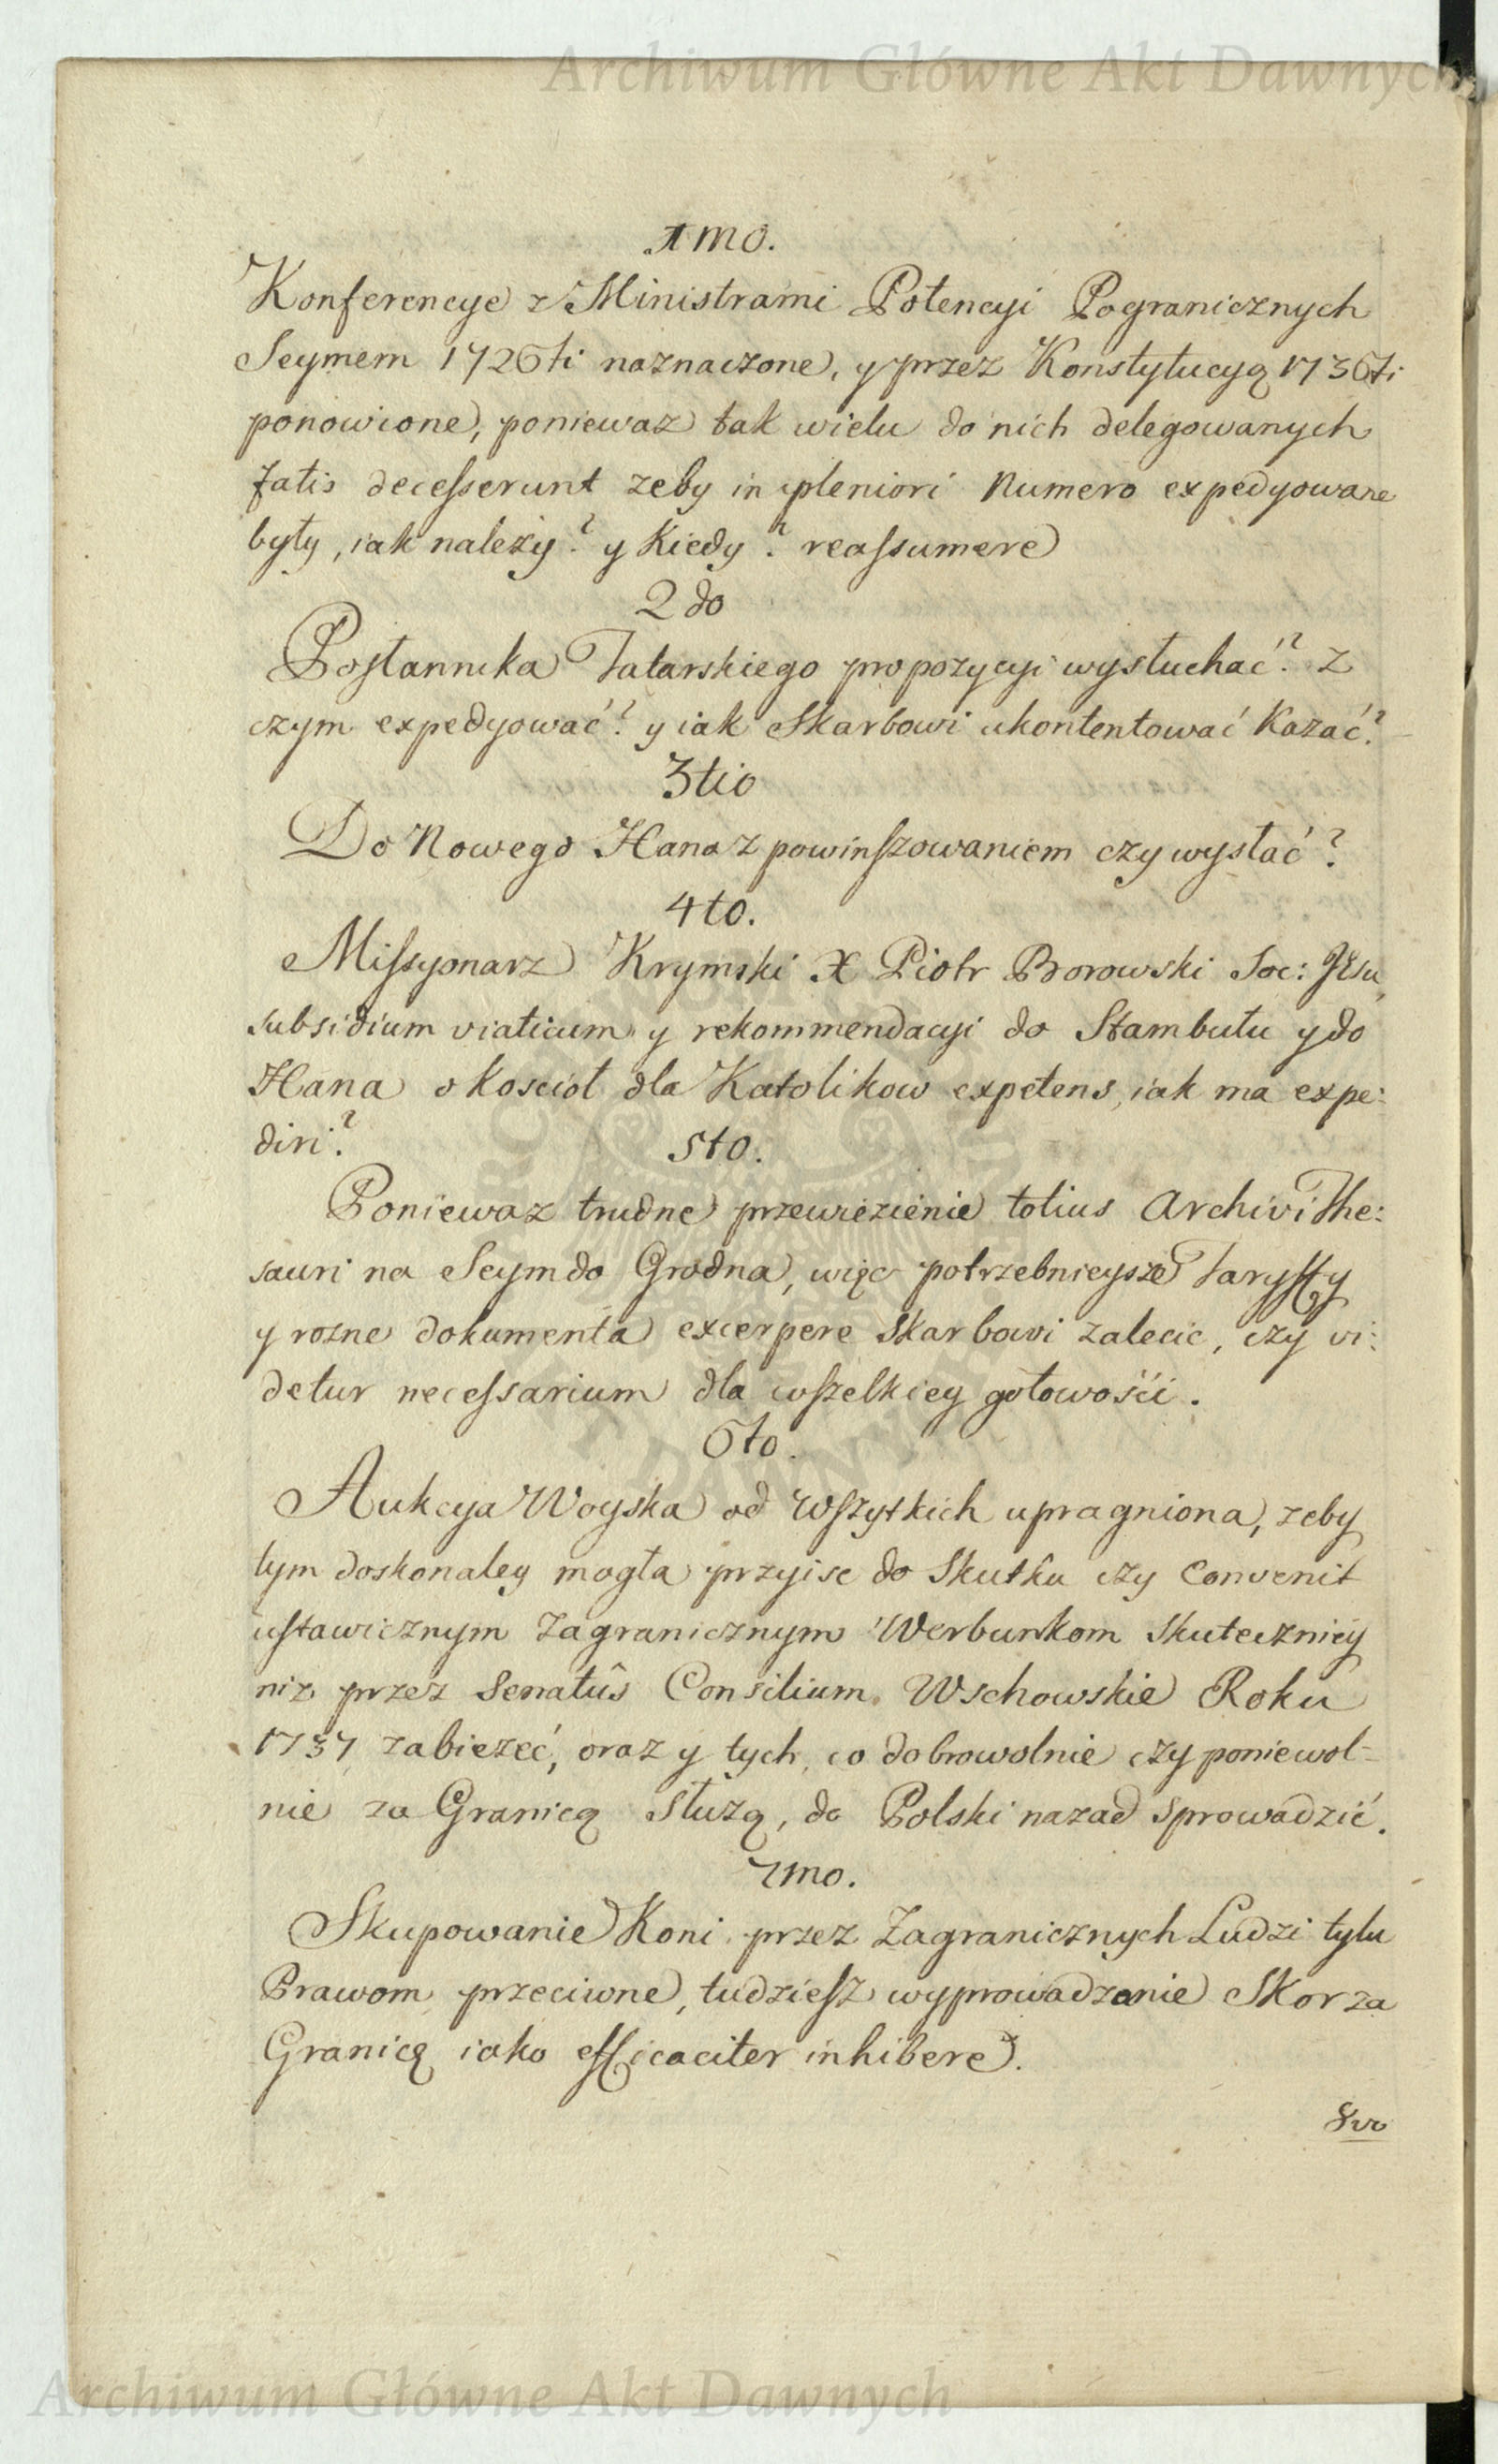 Archiwum Główne Akt Dawnych
1mo.
Konferencye z Ministrami Potencyi Pogranicznych
Seymem 1726ti naznaczone, y przez Konstytucyą 1736ti
ponowione, poniewaz tak wielu do nich delegowanych
fatis decesserunt zeby in pleniori Numero expedyowane
były, iak należy? y Kiedy? reassumere
2do
Posłannika Tatarskiego propozycyi wysłuchać? z
czym expedyować? y iak Skarbowi ukontentować Kazać?
3tio
Do Nowego Hana z powinszowaniem czy wysłać?
4to.
Missyonarz Krymski X Piotr Borowski Soc: Jesu
subsidium viaticum y rekommendacyi do Stambułu y do
Hana o koscioł dla Katolikow expetens, iak ma expe:
diri?
5to.
Poniewaz trudne przewiezienie totius Archivi The:
sauri na Seym do Grodna, więc potrzebnieysze Taryffy
y rozne dokumenta excerpere Skarbowi zalecic, czy vi:
detur necessarium dla wszelkiey gotowości.
6to.
Aukcya Woyska od Wszytkich upragniona, zeby
tym doskonaley mogła przyisc do Skutku czy Convenit
ustawicznym Zagranicznym Werbunkom Skuteczniey
niz przez Senatûs Consilium Wschowskie Roku
1737 zabiezeć, oraz y tych, co dobrowolnie czy poniewol-
nie za Granicą Słuzą, do Polski nazad Sprowadzić.
7mo.
Skupowanie Koni przez Zagranicznych Ludzi tylu
Prawom przeciwne, tudziesz wyprowadzanie Skor za
Granicę iako efficaciter inhibere.
8vo
Archiwum Główne Akt Dawnych